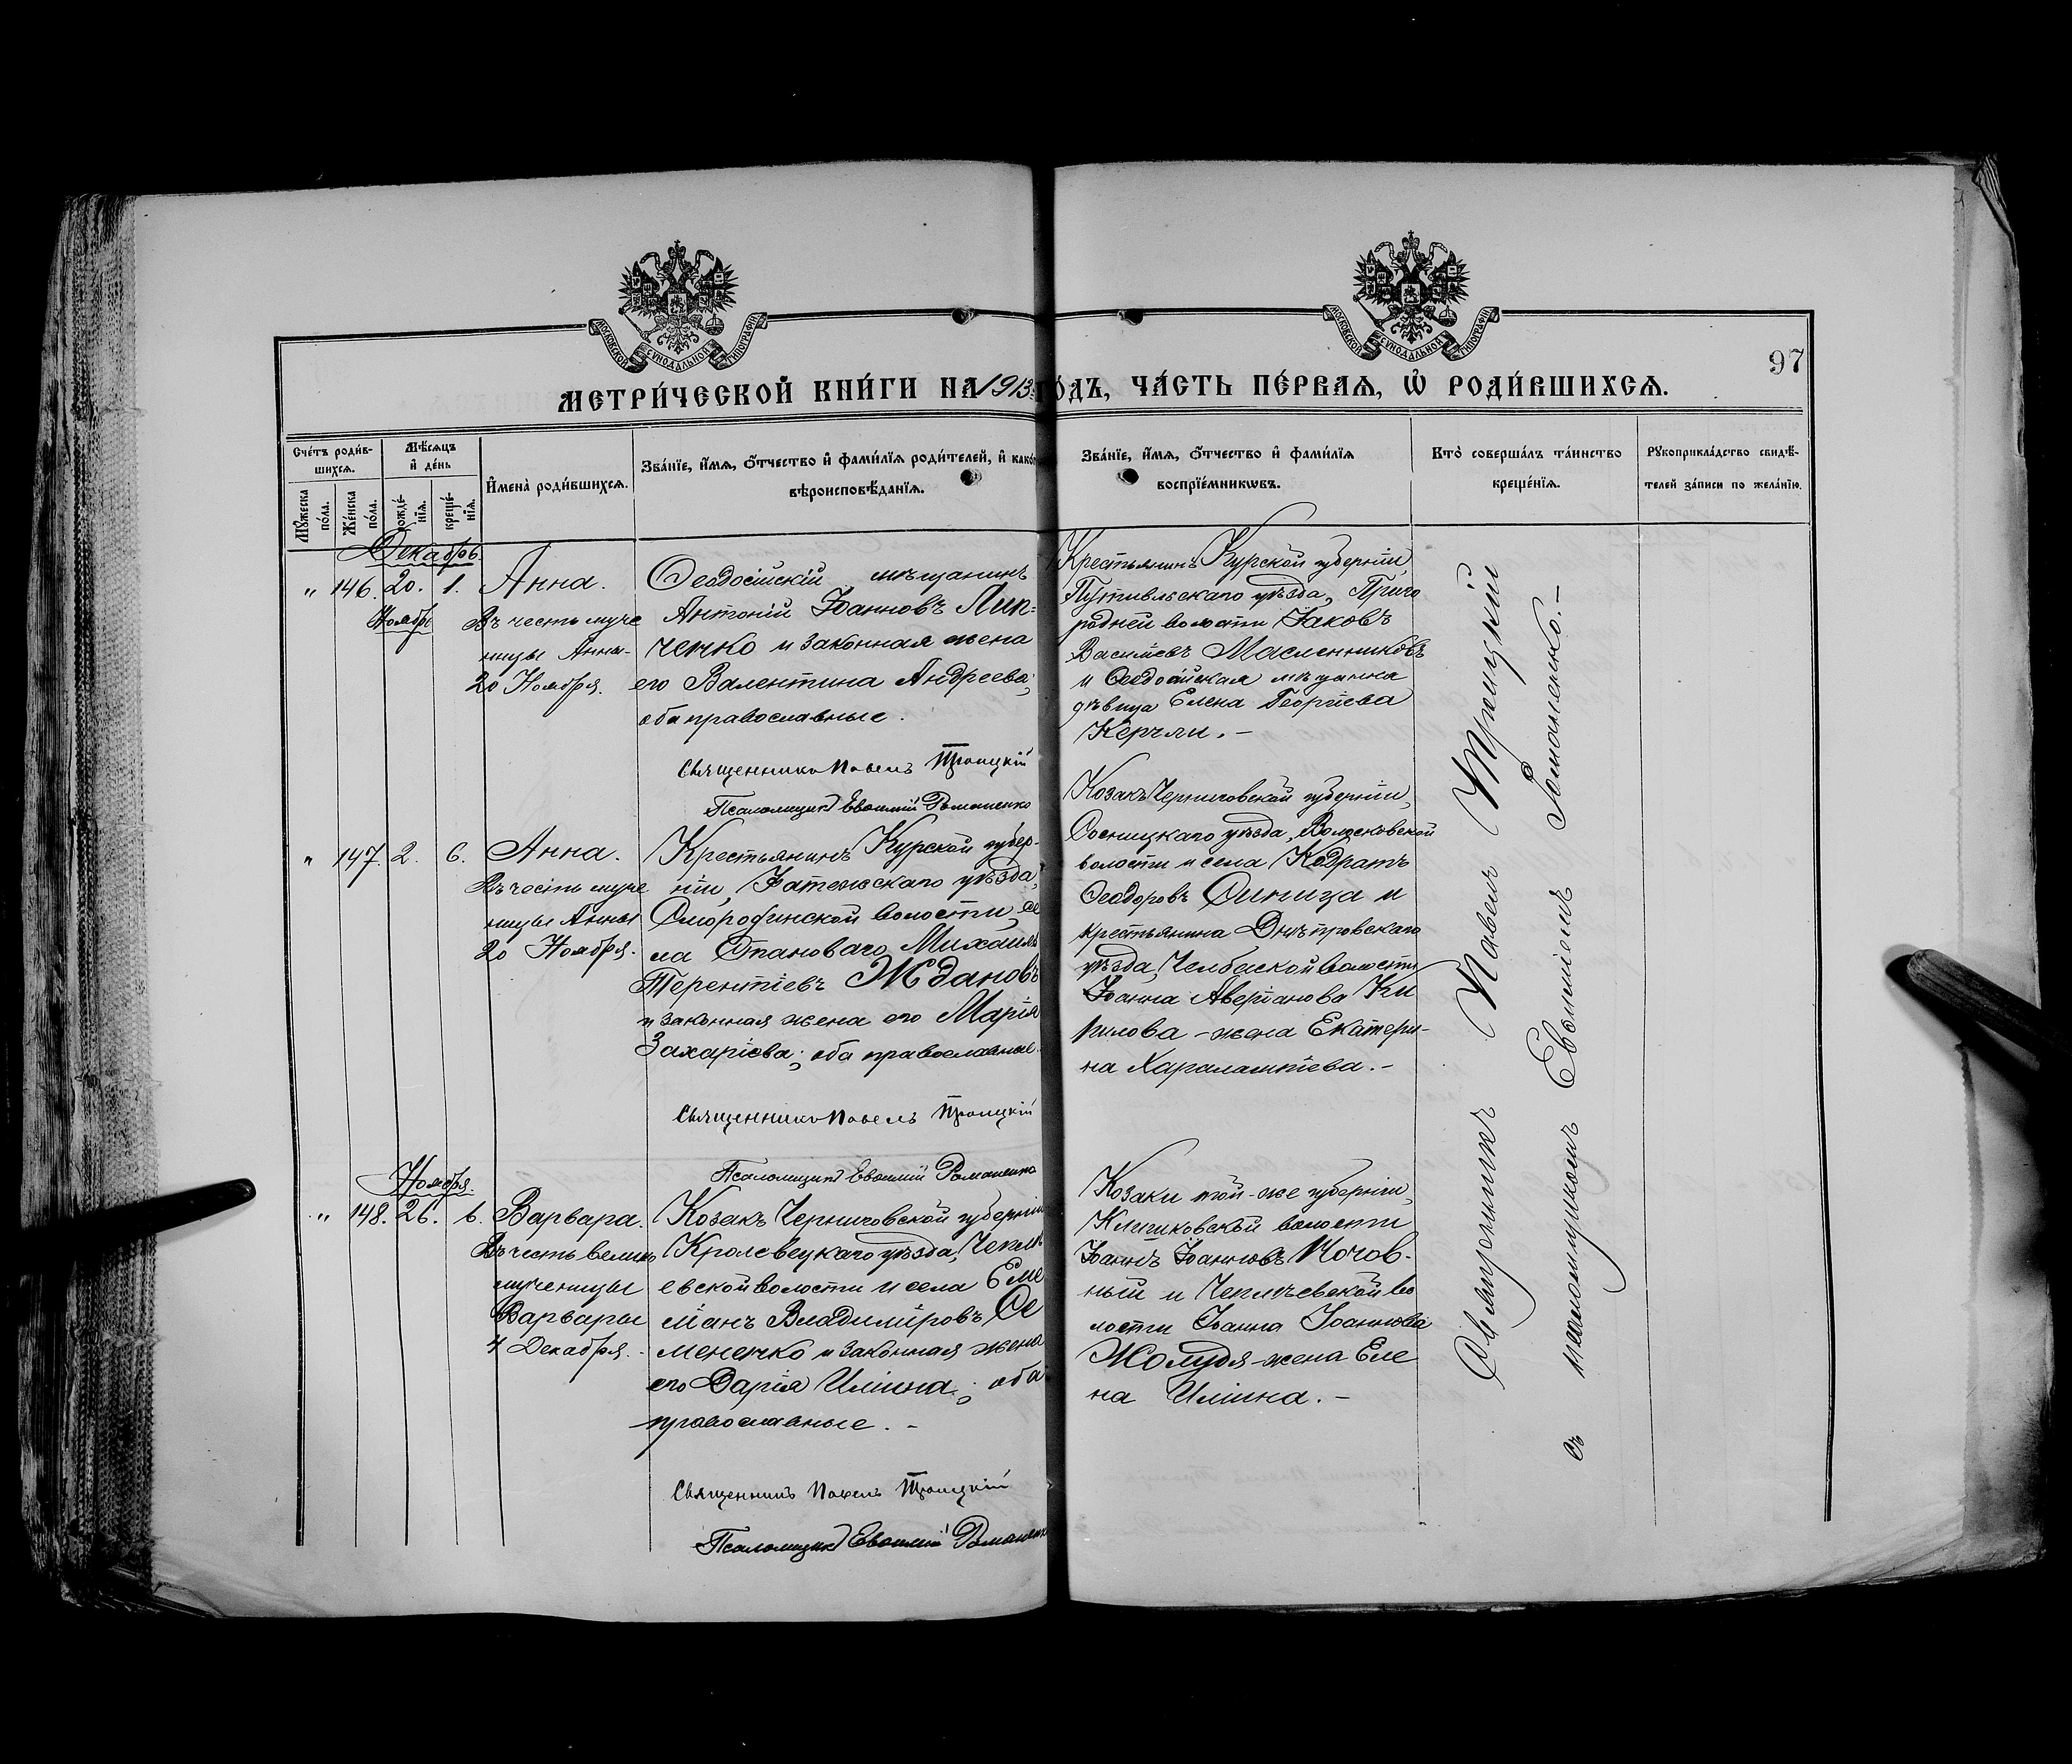 МОСКОВСКОЙ СѴНОДАЛЬНОЙ ТИПОГРАФІИ
МОСКОВСКОЙ СѴНОДАЛЬНОЙ ТИПОГРАФІИ
97
МЕТРИ́ЧЕСКОЙ КНИ́ГИ НА 1913 ГО́ДЪ, ЧА́СТЬ ПЕ́РВАѦ, Ѡ РОДИ́ВШИХСѦ.
Сче́тъ роди́в-
шихсѧ.
Мꙋ́жеска
по́ла.
Же́нска
по́ла.
Мѣ́сѧцъ
и де́нь
рожде́-
нїѧ.
креще́-
нїѧ.
И҆мена̀ роди́вшихсѧ.
Зва́нїе, и҆́мѧ, ѻ҆́тчество и҆ фами́лїѧ роди́телей, и҆ како́
вѣроисповѣ́данїѧ.
Зва́нїе, и҆́мѧ, ѻ҆́тчество и҆ фами́лїѧ
воспрїе́мникѡвъ.
Кто̀ соверша́лъ та́инство
креще́нїѧ.
Рꙋкоприкла́дство свидѣ́-
телей за́писи по жела́нїю.
Декабрь.
" 146. 20. 1.
Ноября
Анна.
Въ честь муче
ницы Анны
20 Ноября.
Ѳеодосійскій мѣщанинъ
Антоній Іоанновъ Лип=
ченко и законная жена
его Валентина Андреева;
оба православные.
Священникъ Павелъ Троицкій
Псаломщикъ Евѳимій Романенко
Крестьянинъ Курской губерніи
Путивльскаго уѣзда, Приго
родней волости Іаковъ
Василіевъ Масленниковъ
и Ѳеодосійская мѣщанка
дѣвица Елена Георгіева
Керчли. -
" 147. 2. 6.
Анна.
Въ честь муче
ницы Анны
20 Ноября.
Крестьянинъ Курской губер-
ніи, Фатежскаго уѣзда,
Смородинской волости, се
ла Становаго Михаилъ
Терентіевъ Ждановъ
и законная жена его Марія
Захаріева; оба православные.
Священникъ Павелъ Троицкій
Псаломщикъ Евѳимій Романенко
Козакъ Черниговской губерніи,
Сосницкаго уѣзда, Волосковской
волости и села Кодратъ
Ѳеодоровъ Синица и
крестьянина Днѣпровскаго
уѣзда, Челбаской волости
Іоанна Аверіанова Ки
рилова - жена Екатери-
на Харалампіева. -
Ноября.
" 148. 26. 6.
Варвара.
Въ честь велико
мученицы
Варвары
4 Декабря.
Козакъ Черниговской губерніи
Кролевецкаго уѣзда, Чепли
евской волости и села Еме
ліанъ Владиміровъ Се
мененко и законная жена
его Дарія Иліина; оба
православные. -
Священникъ Павелъ Троицкій
Псаломщикъ Евѳимій Романенко
Козаки той-же губерніи,
волости
Іоаннъ Іоанновъ Кочов-
ный и Чеплѣевской во
лости Іоанна Іоаннова
Жолудя - жена Еле
на Иліина. -
Священникъ Павелъ Троицкій
съ псаломщикомъ Евѳиміемъ Романенко. -